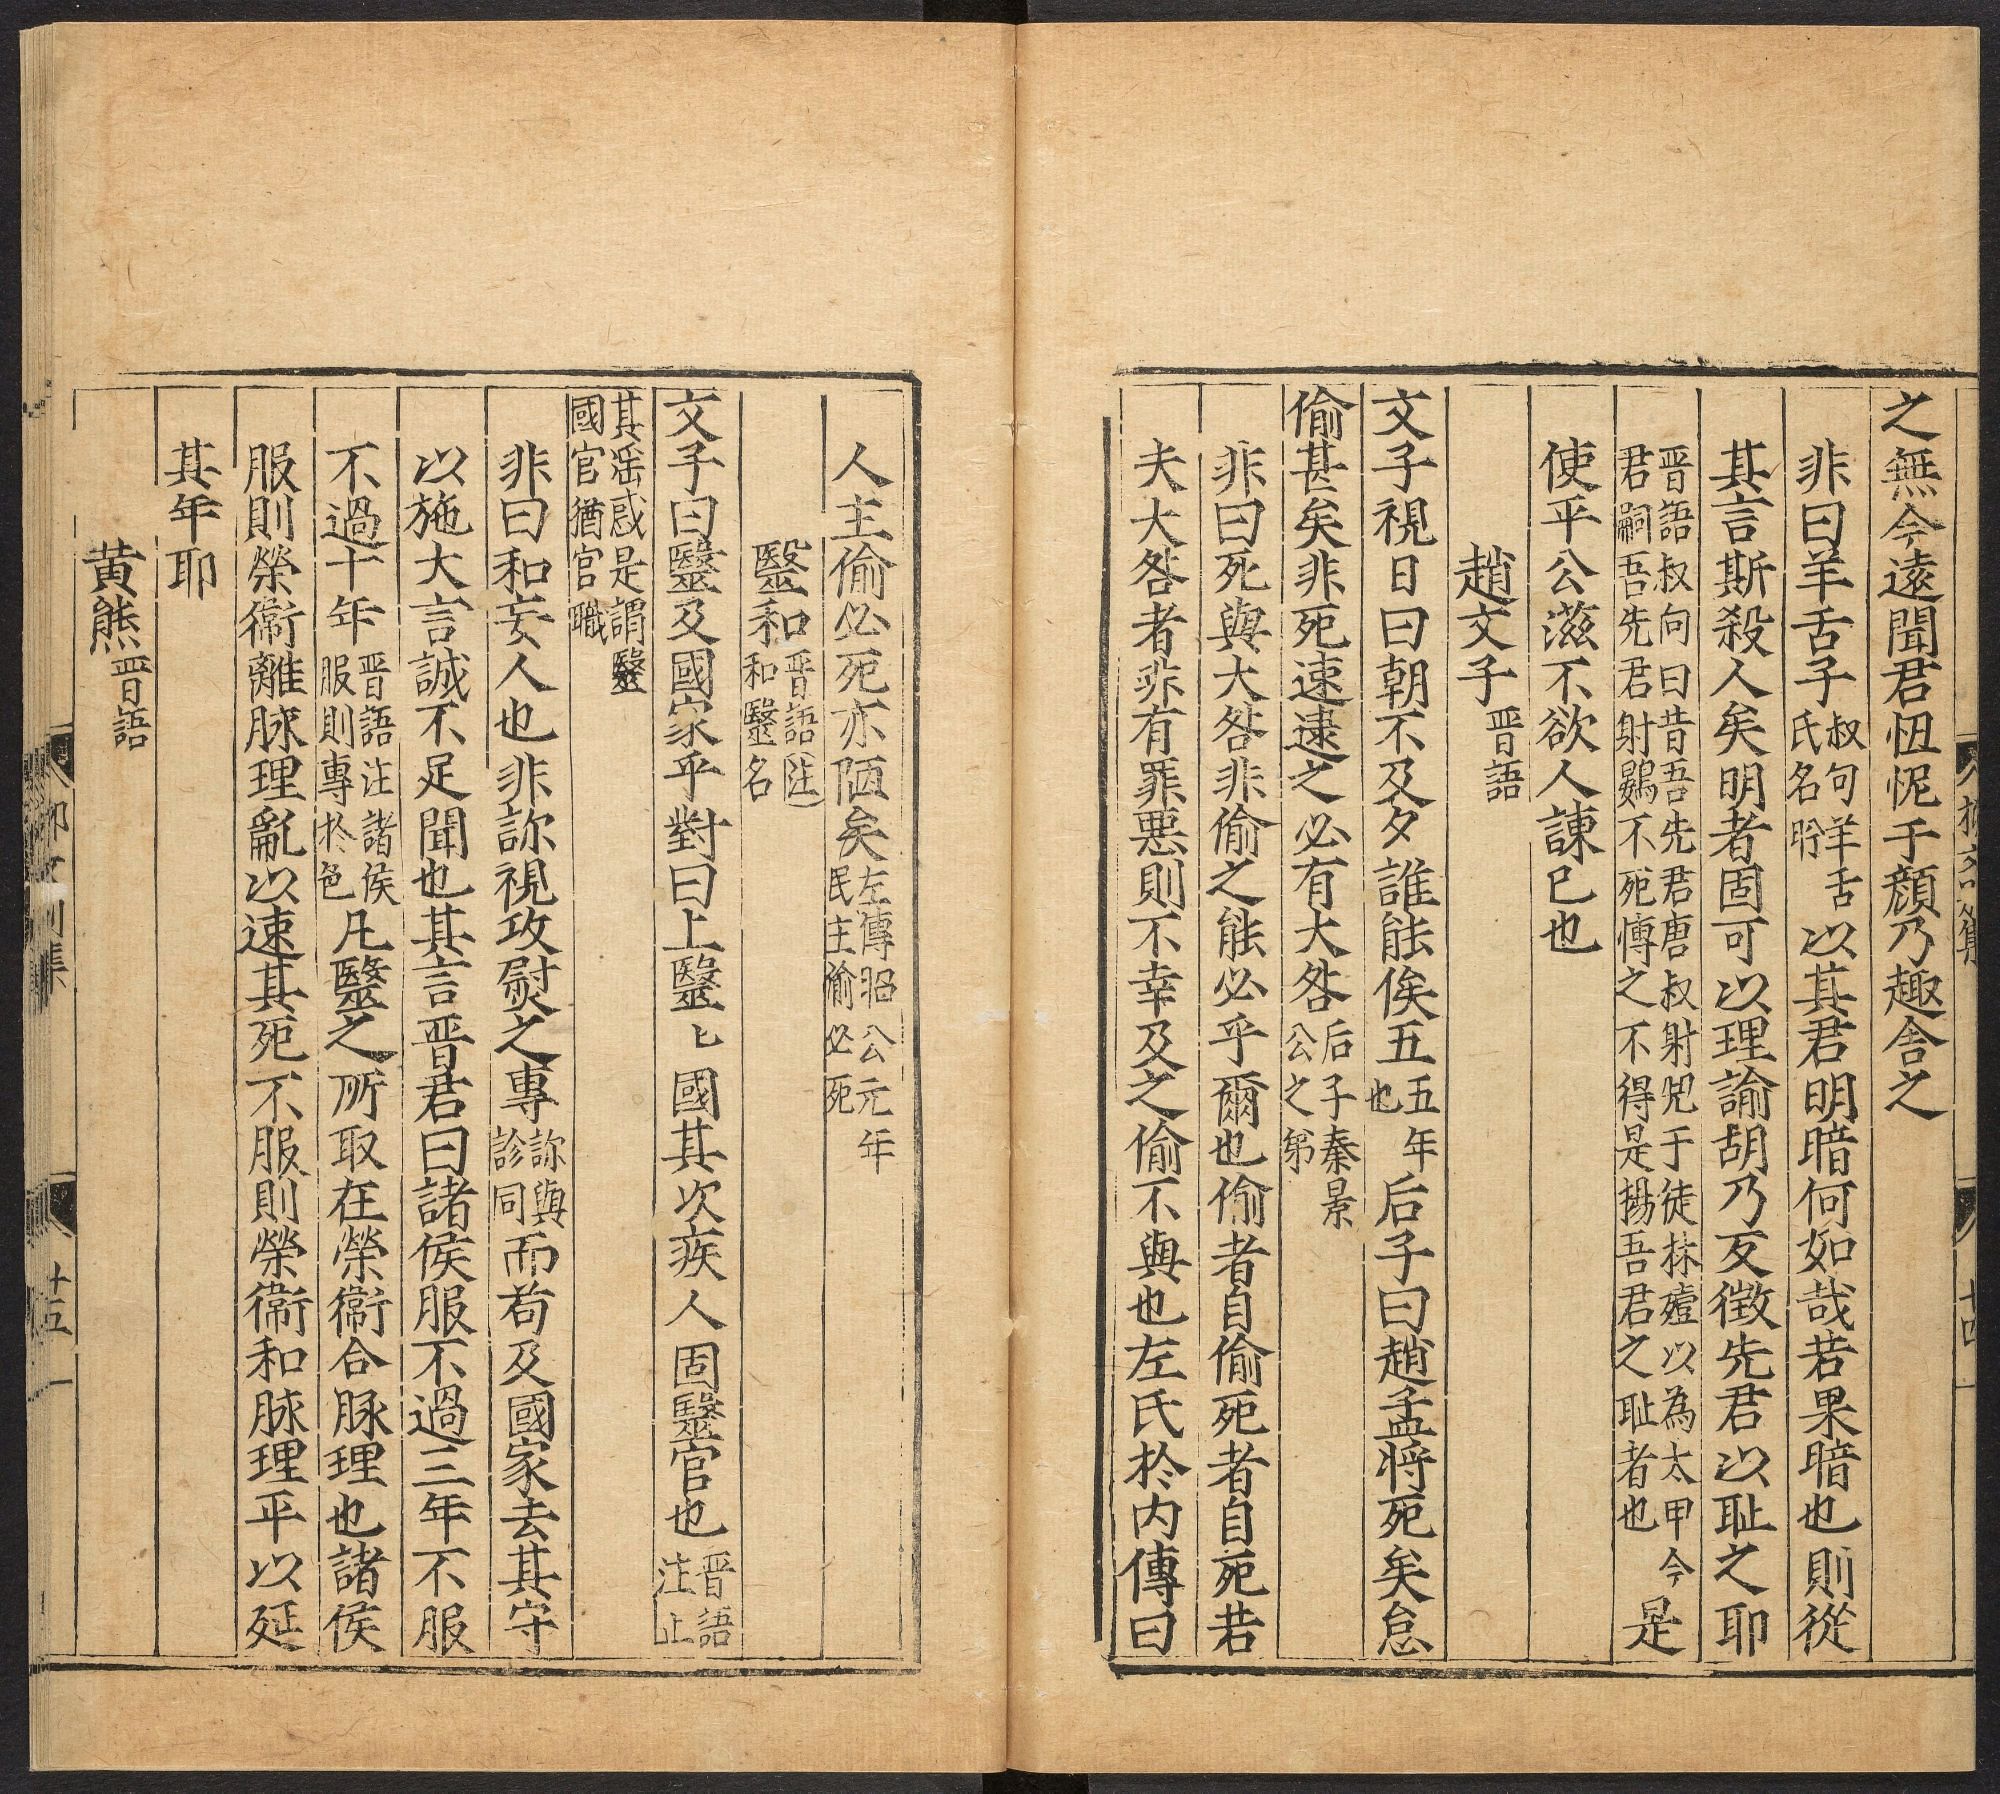 之無令遠聞君忸怩于顏乃趣舍之
非曰羊舌子叔向羊舌氏名肸以其君明暗何如哉若果暗也則從
其言斯殺人矣明者固可以理諭胡乃反徵先君以恥之耶
晋語叔向曰昔吾先君唐叔射兕于徒林殪以為太甲今君嗣吾先君射鷃不死愽之不得是揚吾君之耻者也是
使平公滋不欲人諫已也
趙文子晋語
文子視日曰朝不及夕誰能俟五五年也后子曰趙孟將死矣怠
偷甚矣非死逮之必有大咎后子秦景公之弟
非曰死與大咎非偷之能必乎爾也偷者自偷死者自死若
夫大咎者非有罪惡則不幸及之偷不與也左氏於内傳曰
人主偷必死亦陋矣左傳昭公元年民主偷必死
醫和晋語注和醫名
文子曰醫及國家乎對曰上醫匕國其次疾人固醫官也晋語注止
其滛惑是謂醫國官猶官職
非曰和妄人也非診視攻熨之專診與診同而苟及國家去其守
以施大言誠不足聞也其言晋君曰諸侯服不過三年不服
不過十年晋語注諸侯服則專於色凡醫之所取在榮衞合脉理也諸侯
服則榮衞離脉理亂以速其死不服則榮衞和脉理平以延
其年耶
黄熊晋語
十五